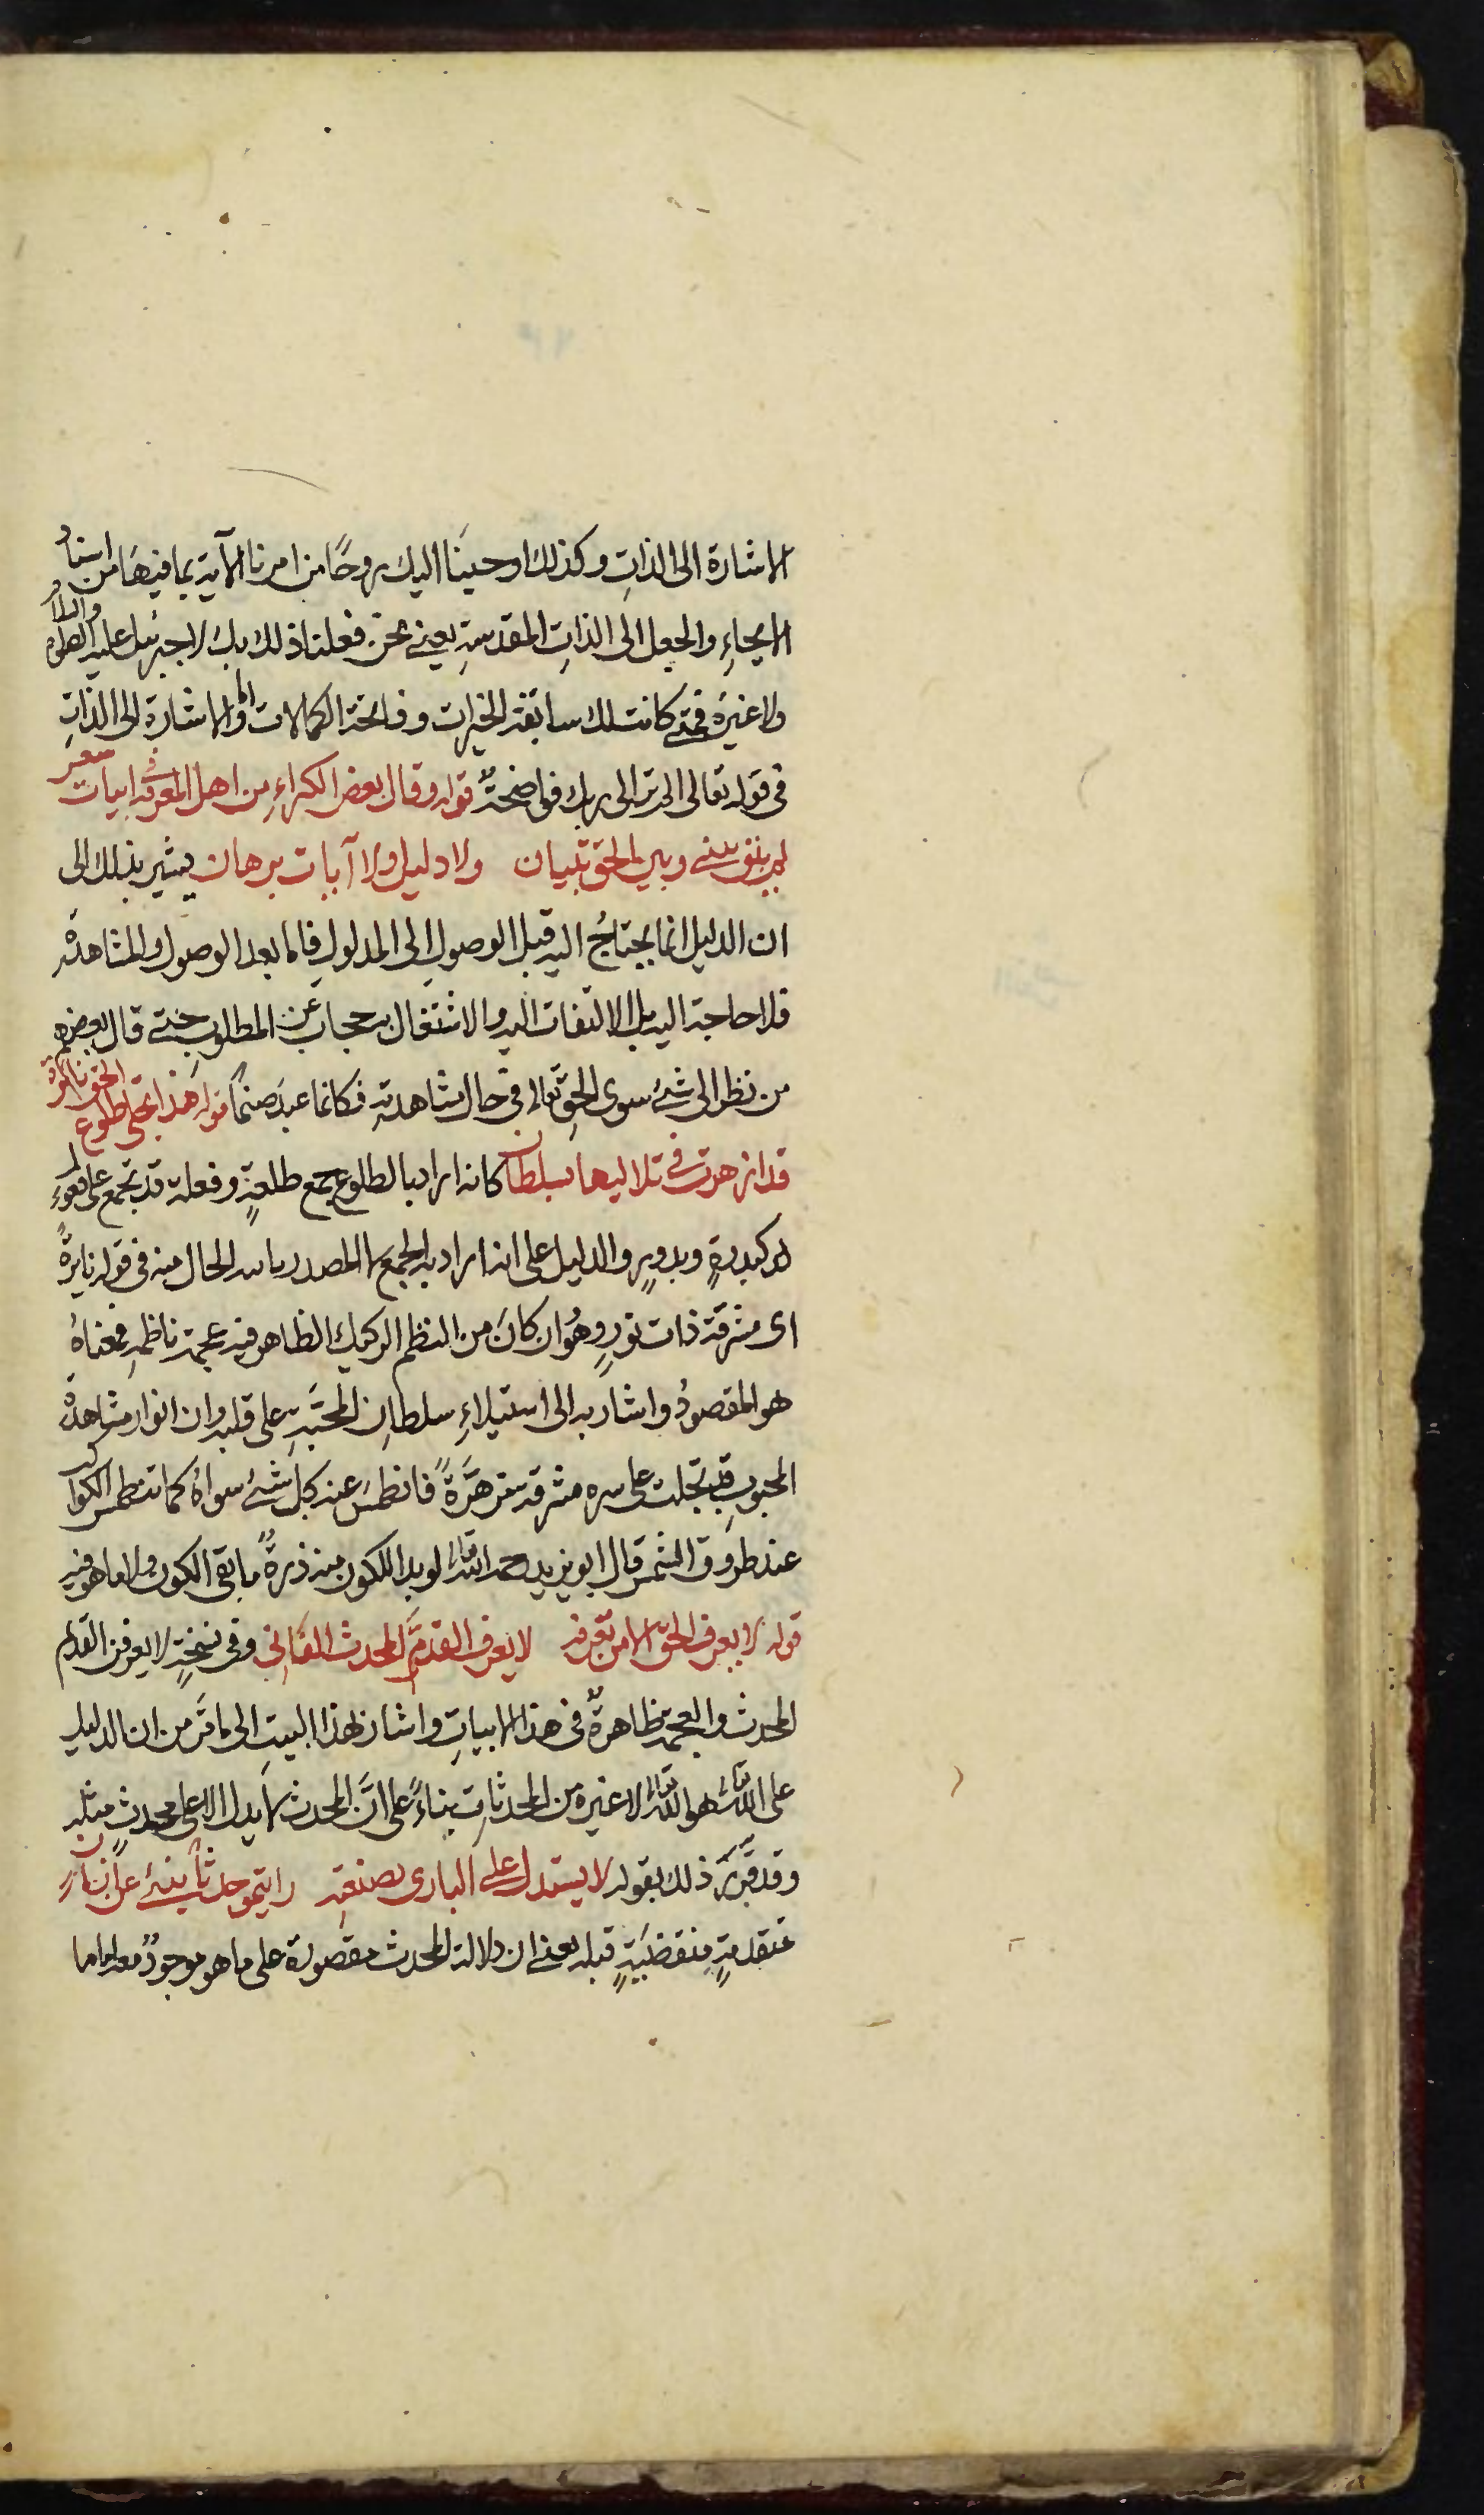 الاشارة الى الذاتِ وكذلك اوحينَا اليك روحًا من امرنا الآية بما فيهَا من اسنادُ
الايحاءِ والجعل الى الذاتِ المقدسةِ يعنى نحن فعلنا ذلك بك لا جبرئيل عليه الصلوة والسلام
ولا غيرهُ فمتى كانت لك سابقة الخيرات وفاتحة الكمالات والاشارة الى الذاتِ
فى قوله تعالى الم تر الى ربك فواضحةٌ قوله وقال بعض الكبراءِ من اهل المعرفة ابيات شعر
لم يبق بينى وبين الحق تبيان ولا دليل ولا آيات برهان يشير بذلك الى
ان الدليل انما يحتاجُ اليه قبل الوصولِ الى المدلولِ فاما بعد الوصول والمشاهدة
فلا حاجة اليه بل الالتفات اليه والاشتغال به حجاب عن المطلوبِ حتى قال بعضهم
من نظر الى شئ سوى الحقِ تعالى فى حال مشاهدتهِ فكانما عبدَ صنمًا قوله هذا تجلى طلوع الحق نائرة
قد ازهرت فى تلاليها بسلطان كانه اراد بالطلوع جمع طلعةٍ وفعلة قد تجمع على فعولٍ
كبدرةٍ وبدورٍ والدليل على انه اراد به الجمع لا المصدر الحال منه فى قوله نايرةً
اى مشرقة ذات نورٍ وهُو ان كانَ من النظم الركيك الظاهر فيه عجمة ناظمهِ فمعناهُ
هو المقصودُ واشار به الى استيلاءِ سلطانِ المحبَّةِ على قلبه وان انوار مشاهدة
المحبوبِ قد تجلت على سره مشرقة مزهرَةً فانطمسَ عنه كل شئ سواهُ كما تنطمس الكواكب
عند طروق الشمس قال ابو يزيد رحمه الله تعالى لو بدا للكون منه ذرةٌ ما بقى الكون ولا ما هو فيه
قوله لا يعرف الحق الا من تعرفه لا يعرف القدمَّ المحدث الفانى وفى نسخةٍ لا يعرفن القدم
المحدث والعجمة ظاهرةٌ فى هذا الابياتِ واشار بهذا البيتِ الى ما مَّر من ان الدليل
على الله تعالى هو الله تعالى لا غيره من المحدثاتِ بناءً على انَّ المحدث لا يدل الا على محدثٍ مثله
وقد قرَّرَ ذلك بقوله لا يستدل على البارى بصنعتهِ رايتمو حدثا ينبئ عن ازمان
متقدمةٍ منقضيةٍ قبله يعنى ان دلالة المحدث مقصورة على ما هو موجودٌ معه اما ما